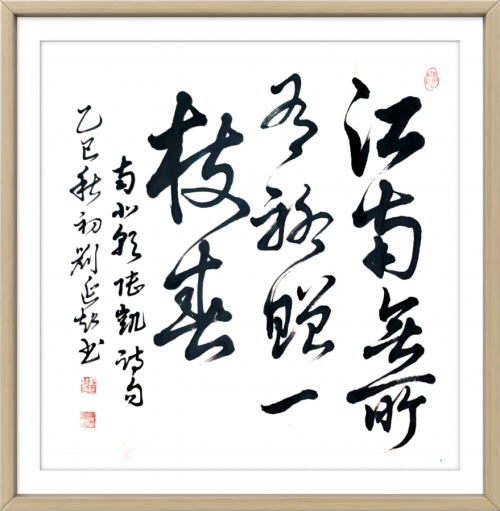 江南無所
有聊贈一
枝春
南北朝陸凱詩句
乙巳秋初劉延超書